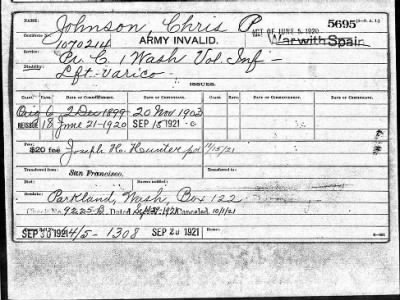 NAME: Johnson Chris P 5695
Certificate No. 1070214 ARMY INVALID. ACT OF JUNE 5, 1920 War with Spain.
Service: Pr. C. 1 Wash Vol. Inf -
Disability: Lft. Varico -
ISSUES.
CLASS. RATE. DATE OF COMMENCEMENT. DATE OF CERTIFICATE. CLASS. RATE. DATE OF COMMENCEMENT. DATE OF CERTIFICATE.
Orig 6 2 Dec 1899 - 20 Nov 1903
REISSUE 18 June 21-1920 SEP 15 1921 - C
Fee: $20 fee Joseph H. Hunter pd 10/15/21
Transferred from: San Francisco.
Parkland, Wash, Box 122
Check No. 9225 Dated Canceled 10/1/21
SEP 30 1921 4/5 - 1308 SEP 20 1921